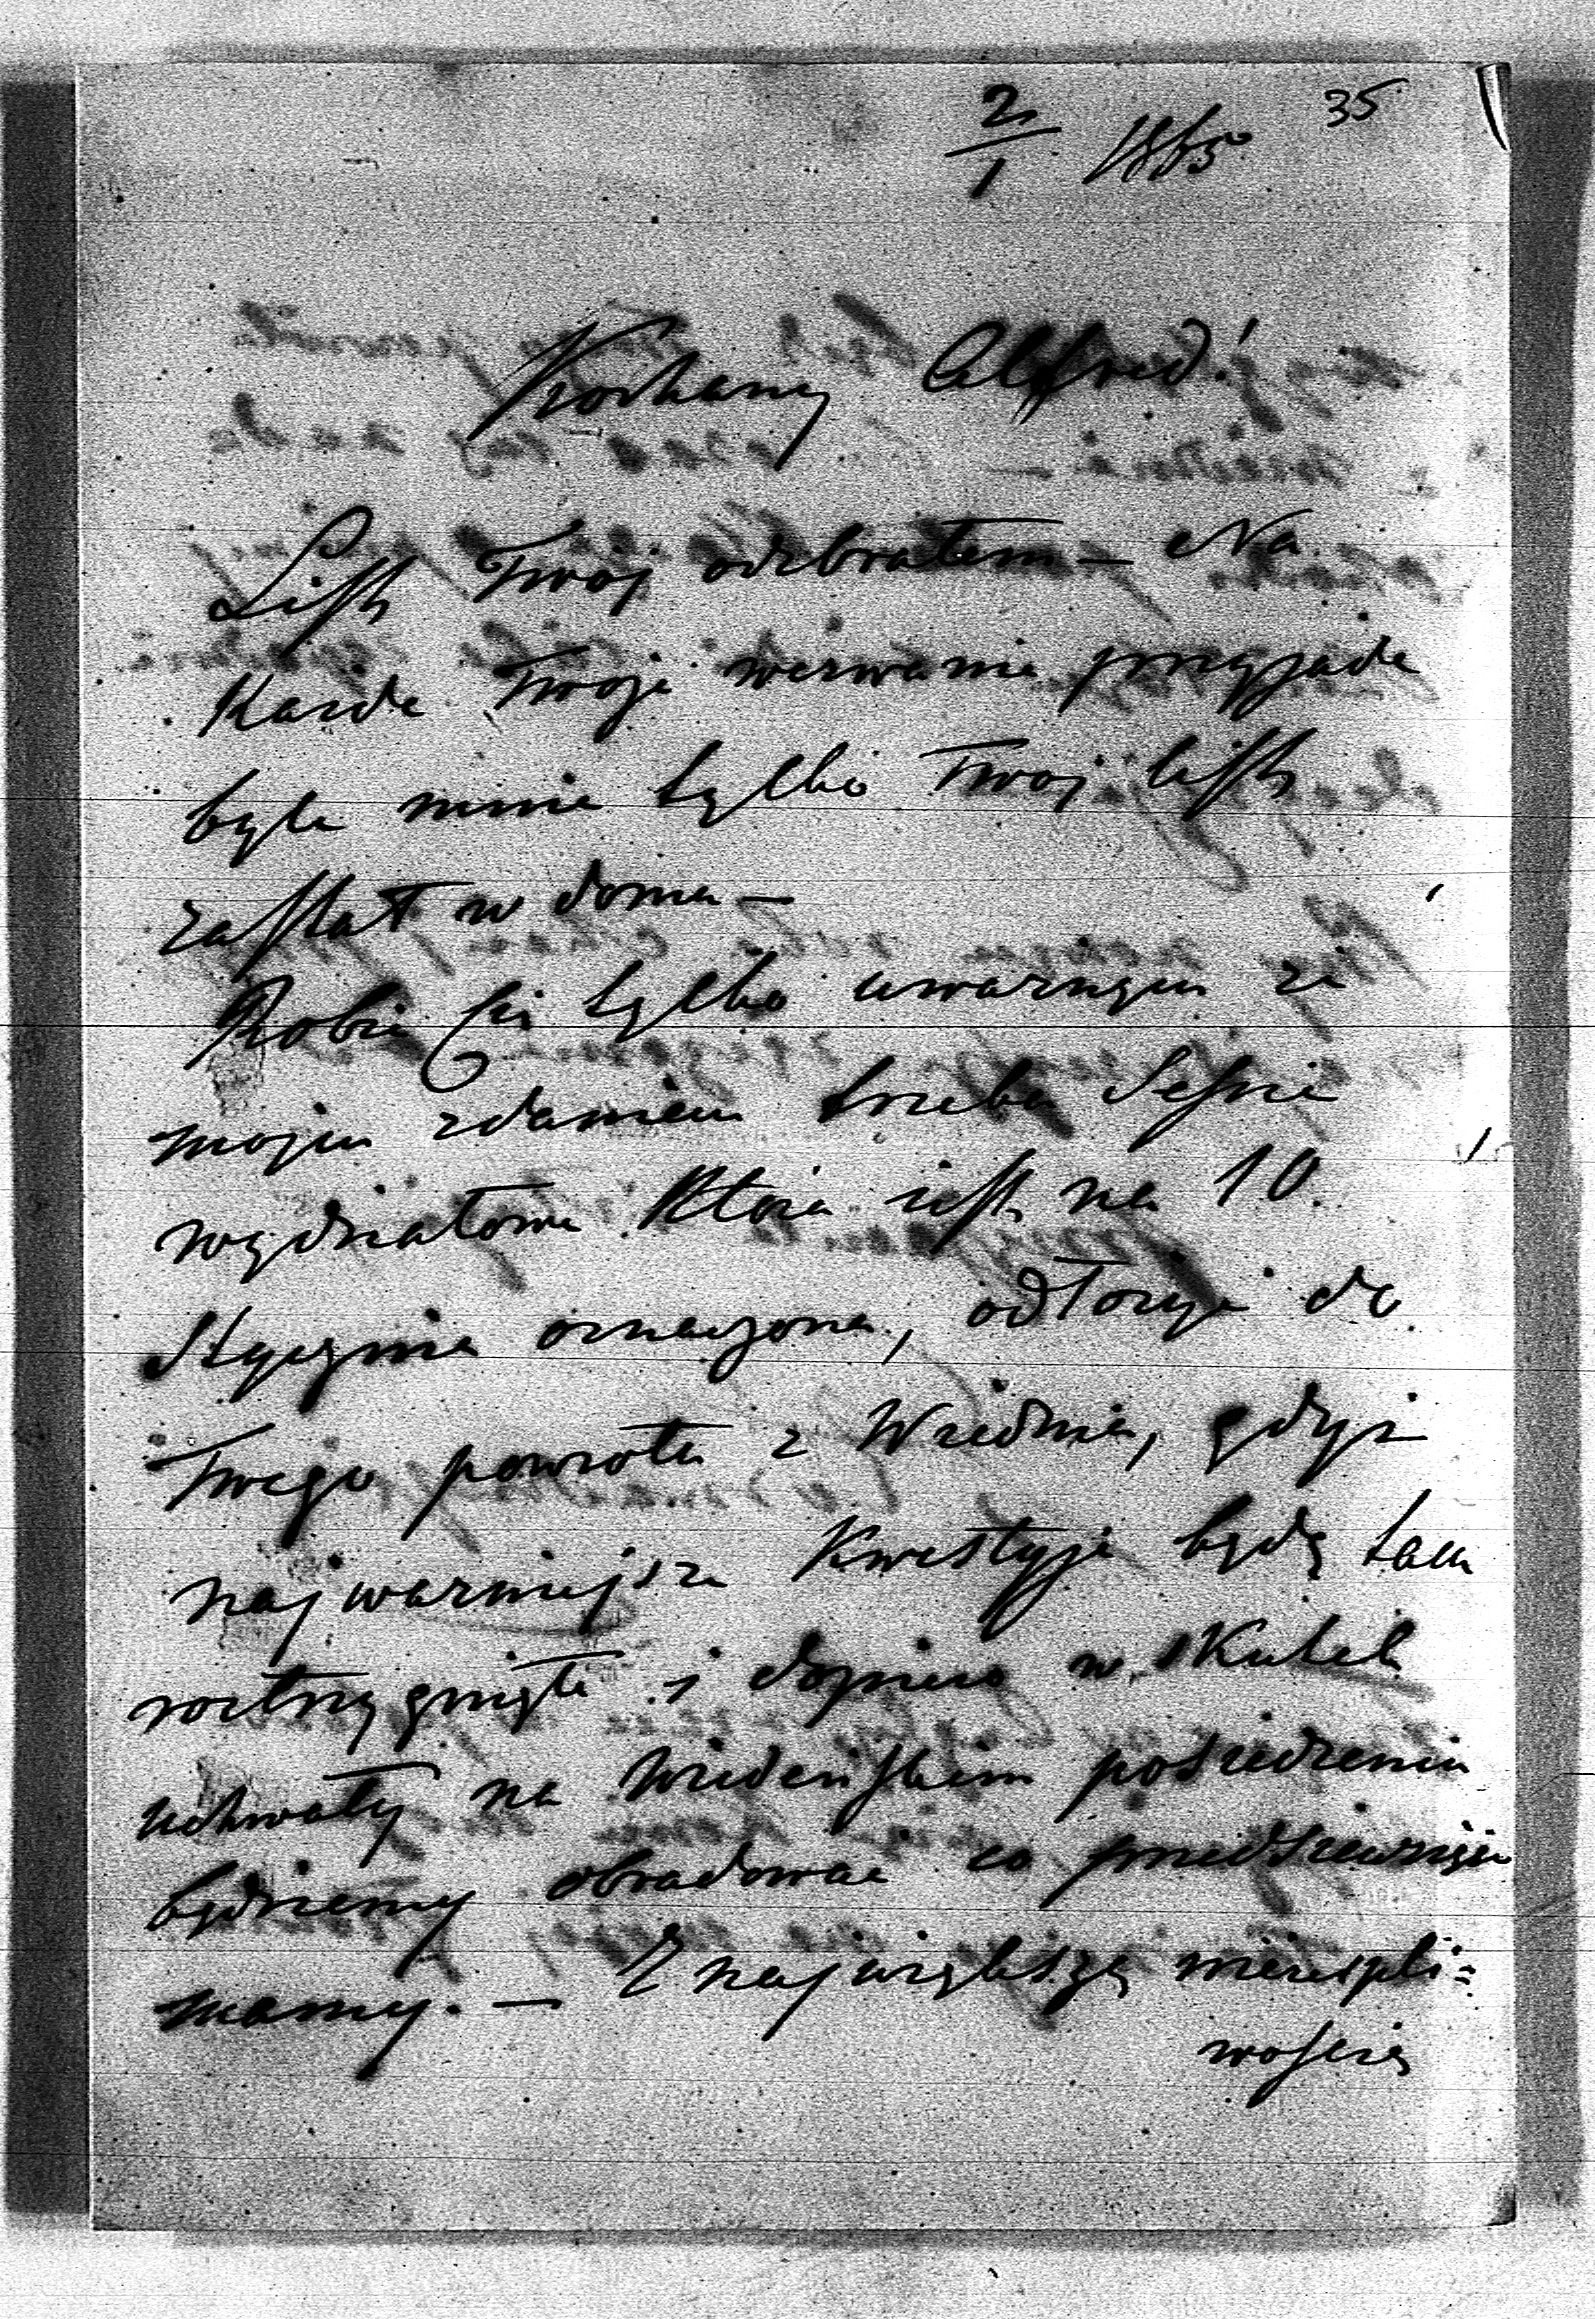 35
2/1 1865
Kochany Alfred!
List Twój odebrałem — Na
Każde Twoje wezwanie przyjade
byle mnie tylko Twoj list
zastał w domu —
Robie Ci tylko uwaznym ze
mojem zdaniem trzeba Sessie
wydziałowe która jest na 10.
Stycznia oznaczona, odłożyć do
Twego powrotu z Wiednia, gdyż
najwazniejsze Kwestyje będą tam
roztrzygnięte i dopiero w skutek
uchwały na Wiedeńskiem posiedzeniu
będziemy obradować co przedsiewziąść
mamy. — Z największą niecierpli=
wością